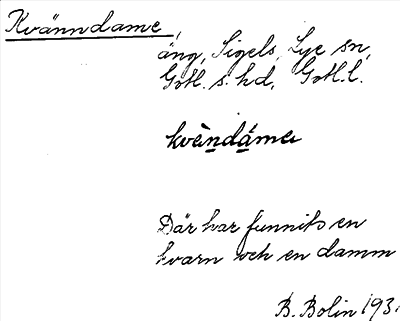 Kvänndame,
äng, Sigels, Lye sn,
Gotl. s. hd, Gotl. l.
kvä̀ndámer
Där har funnits en
kvarn och en damm
B. Bolin 193